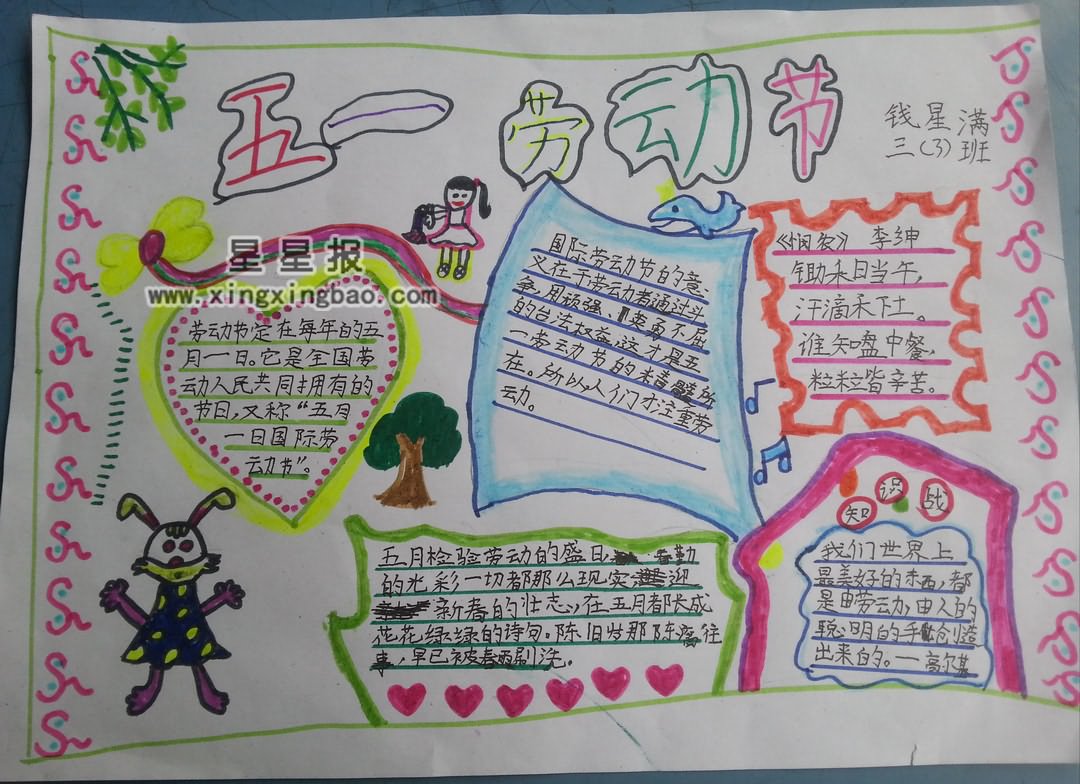 五一 劳动节
钱星满
三(3)班
星星报
www.xingxingbao.com
劳动节定在每年的五
月一日。它是全国劳
动人民共同拥有的
节日,又称“五月
一日国际劳
动节”。
国际劳动节的意
义在于劳动者通过斗
争,用顽强、英勇不屈
的
一劳动节的
在。所以人们才注重劳
动。
《悯农》 李绅
锄禾日当午,
汗滴禾下土。
谁知盘中餐,
粒粒皆辛苦。
五月检验劳动的盛日 春勤
的光彩一切都那么现实 迎
新春的壮志,在五月都长成
花花绿绿的诗句。陈旧岁那陈 往
事,早已被春雨刷洗。
知识战
我们世界上
最美好的东西,都
是由劳动,由人的
聪明的手 创造
出来的。一高尔基